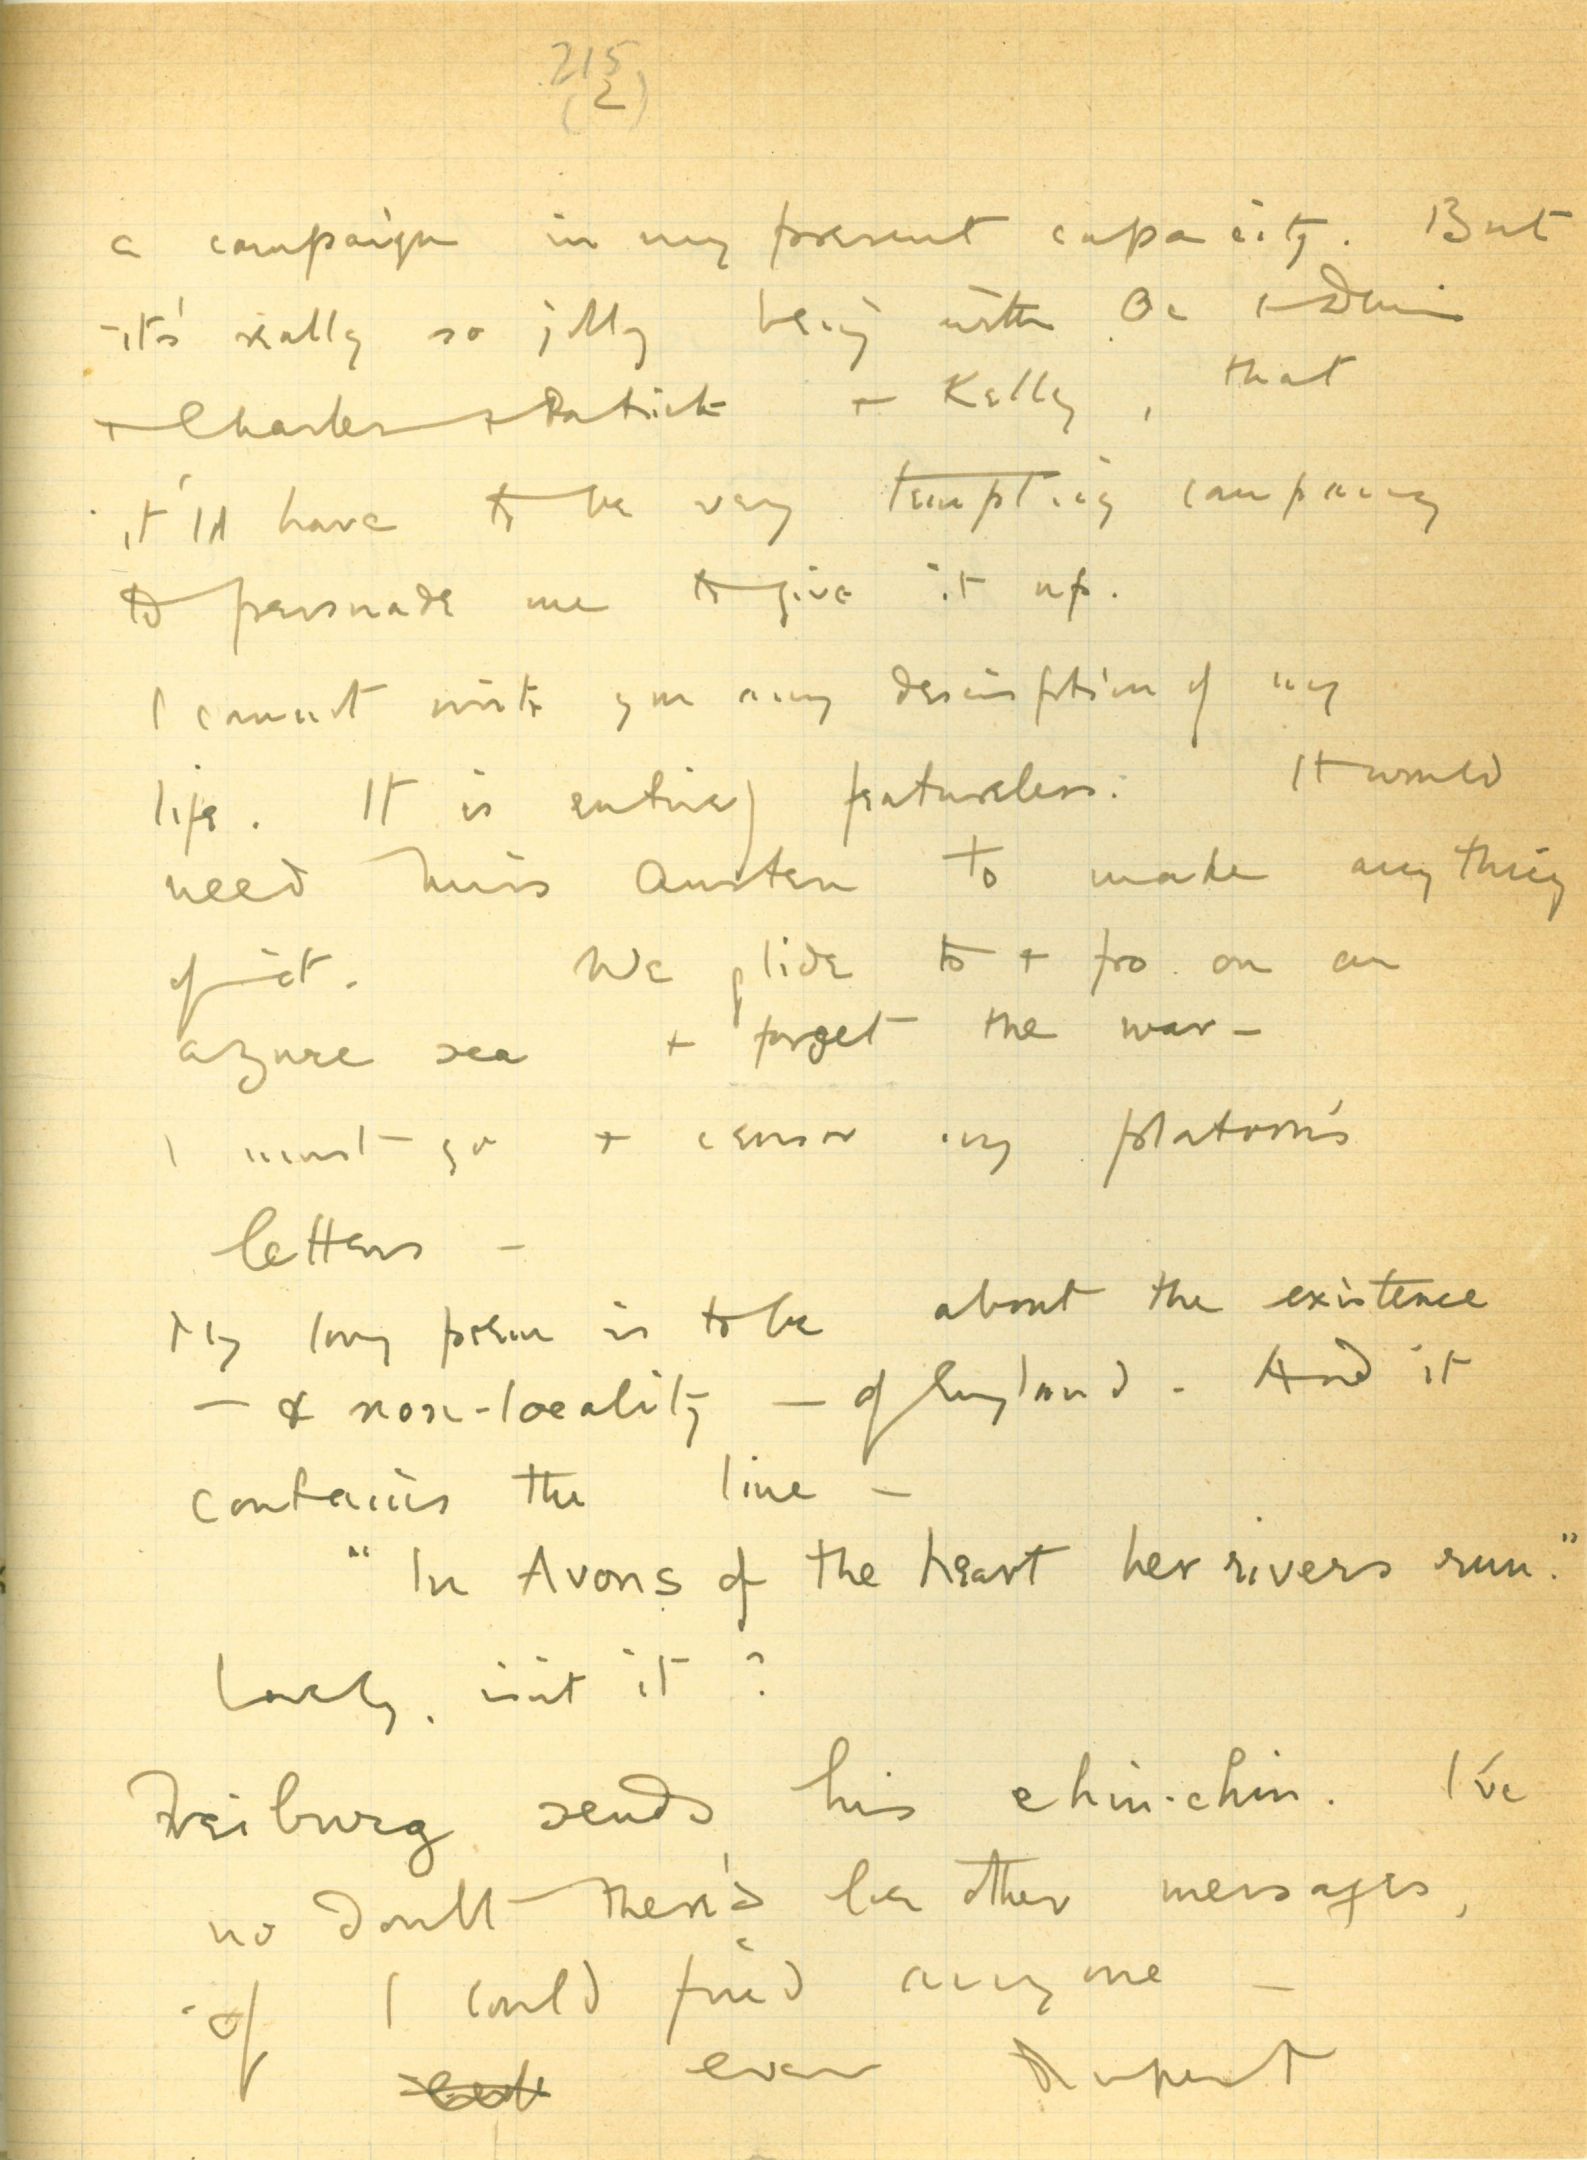 215
(2)
a campaign in my present capacity. But
it's really so jolly being with Oc & Denis
& Charles & Patrick & Kelly, that
it'ld have to be very tempting company
to persuade me to give it up.
I cannot write you any description of my
life. It is entirely featureless. It would
need Miss Austen to make anything
of it. We glide to & fro on an
azure sea & forget the war –
I must go & censor my platoon's
letters –
My long poem is to be about the existence
– & non-locality – of England. And it
contains the line –
"In Avons of the heart her rivers run."
Lovely, isn't it?
sends his chin-chin. I've
no doubt there'd be other messages,
if I could find anyone –
ever Rupert